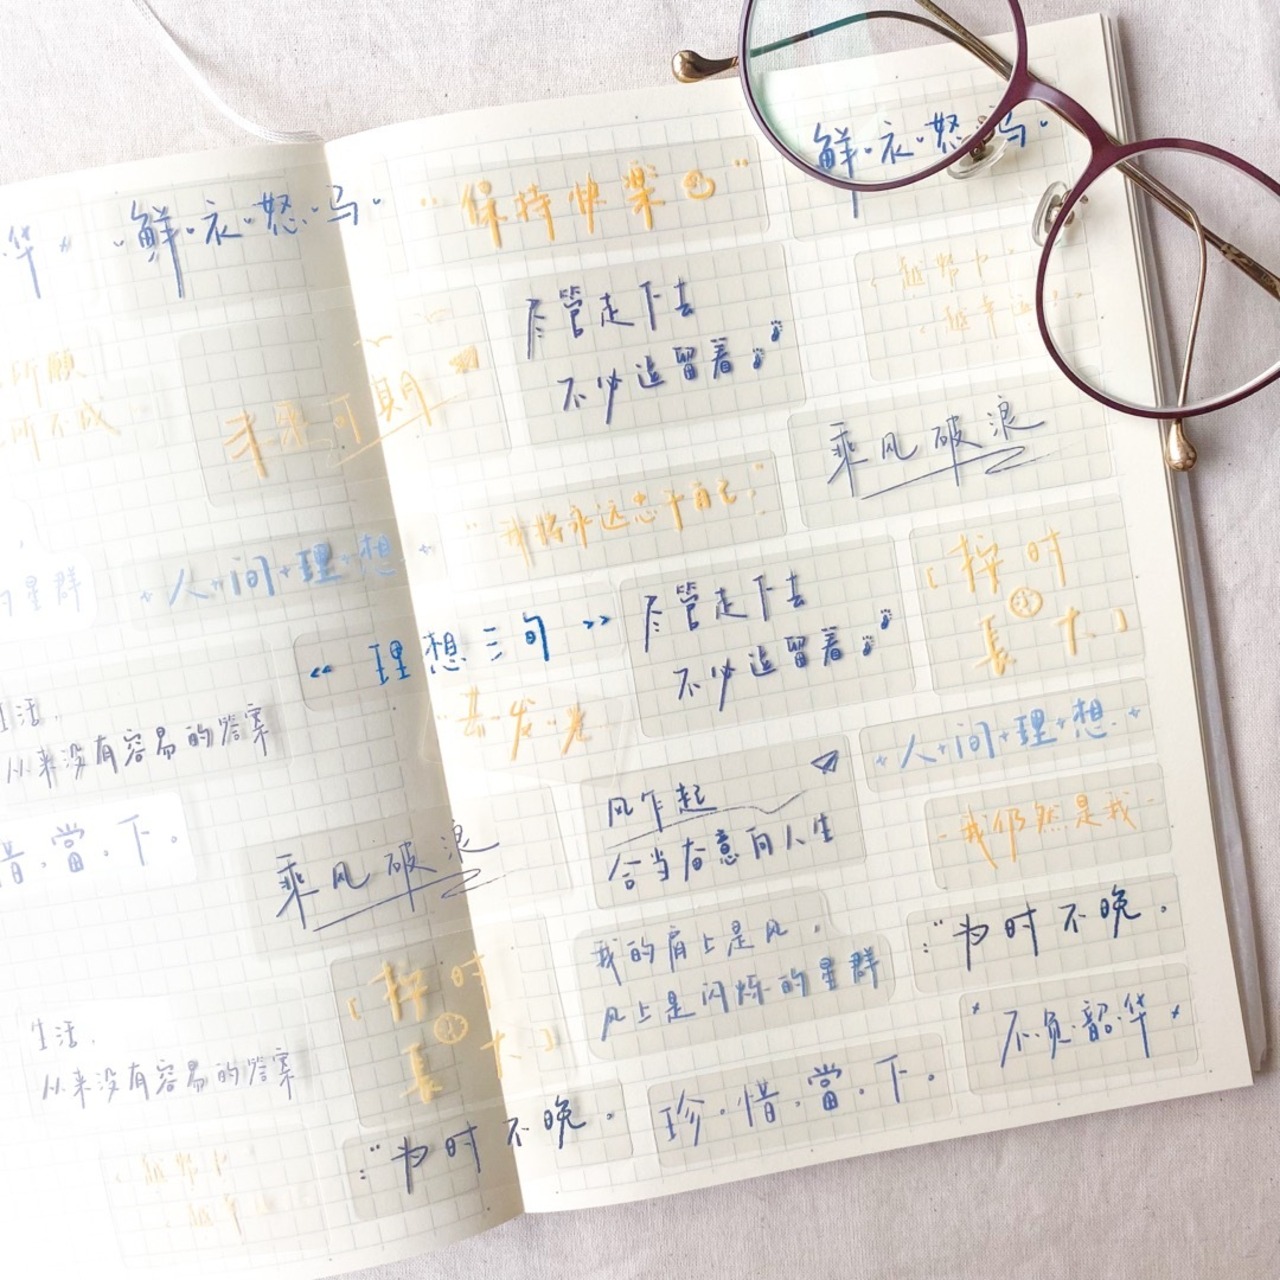 华
·鲜·衣·怒·马·
所愿
所不成
未来可期
的星群
人+间+理+想
生活,
从来没有容易的答案
惜.當.下。
乘风破浪
[按时
長大]
生活,
从来没有容易的答案
"为时不晚。
"保持快樂"
鲜·衣·怒·马·
尽管走下去
不必逗留着
越努力
越幸运
乘风破浪
"我将永远忠于自己"
《理想三句》
尽管走下去
不必逗留着
[按时
長大]
去·发·光
人+间+理+想
风乍起
合当奋意向人生
-我仍然是我-
我的肩上是风,
风上是闪烁的星群
"为时不晚。
珍.惜.當.下。
不·负·韶·华